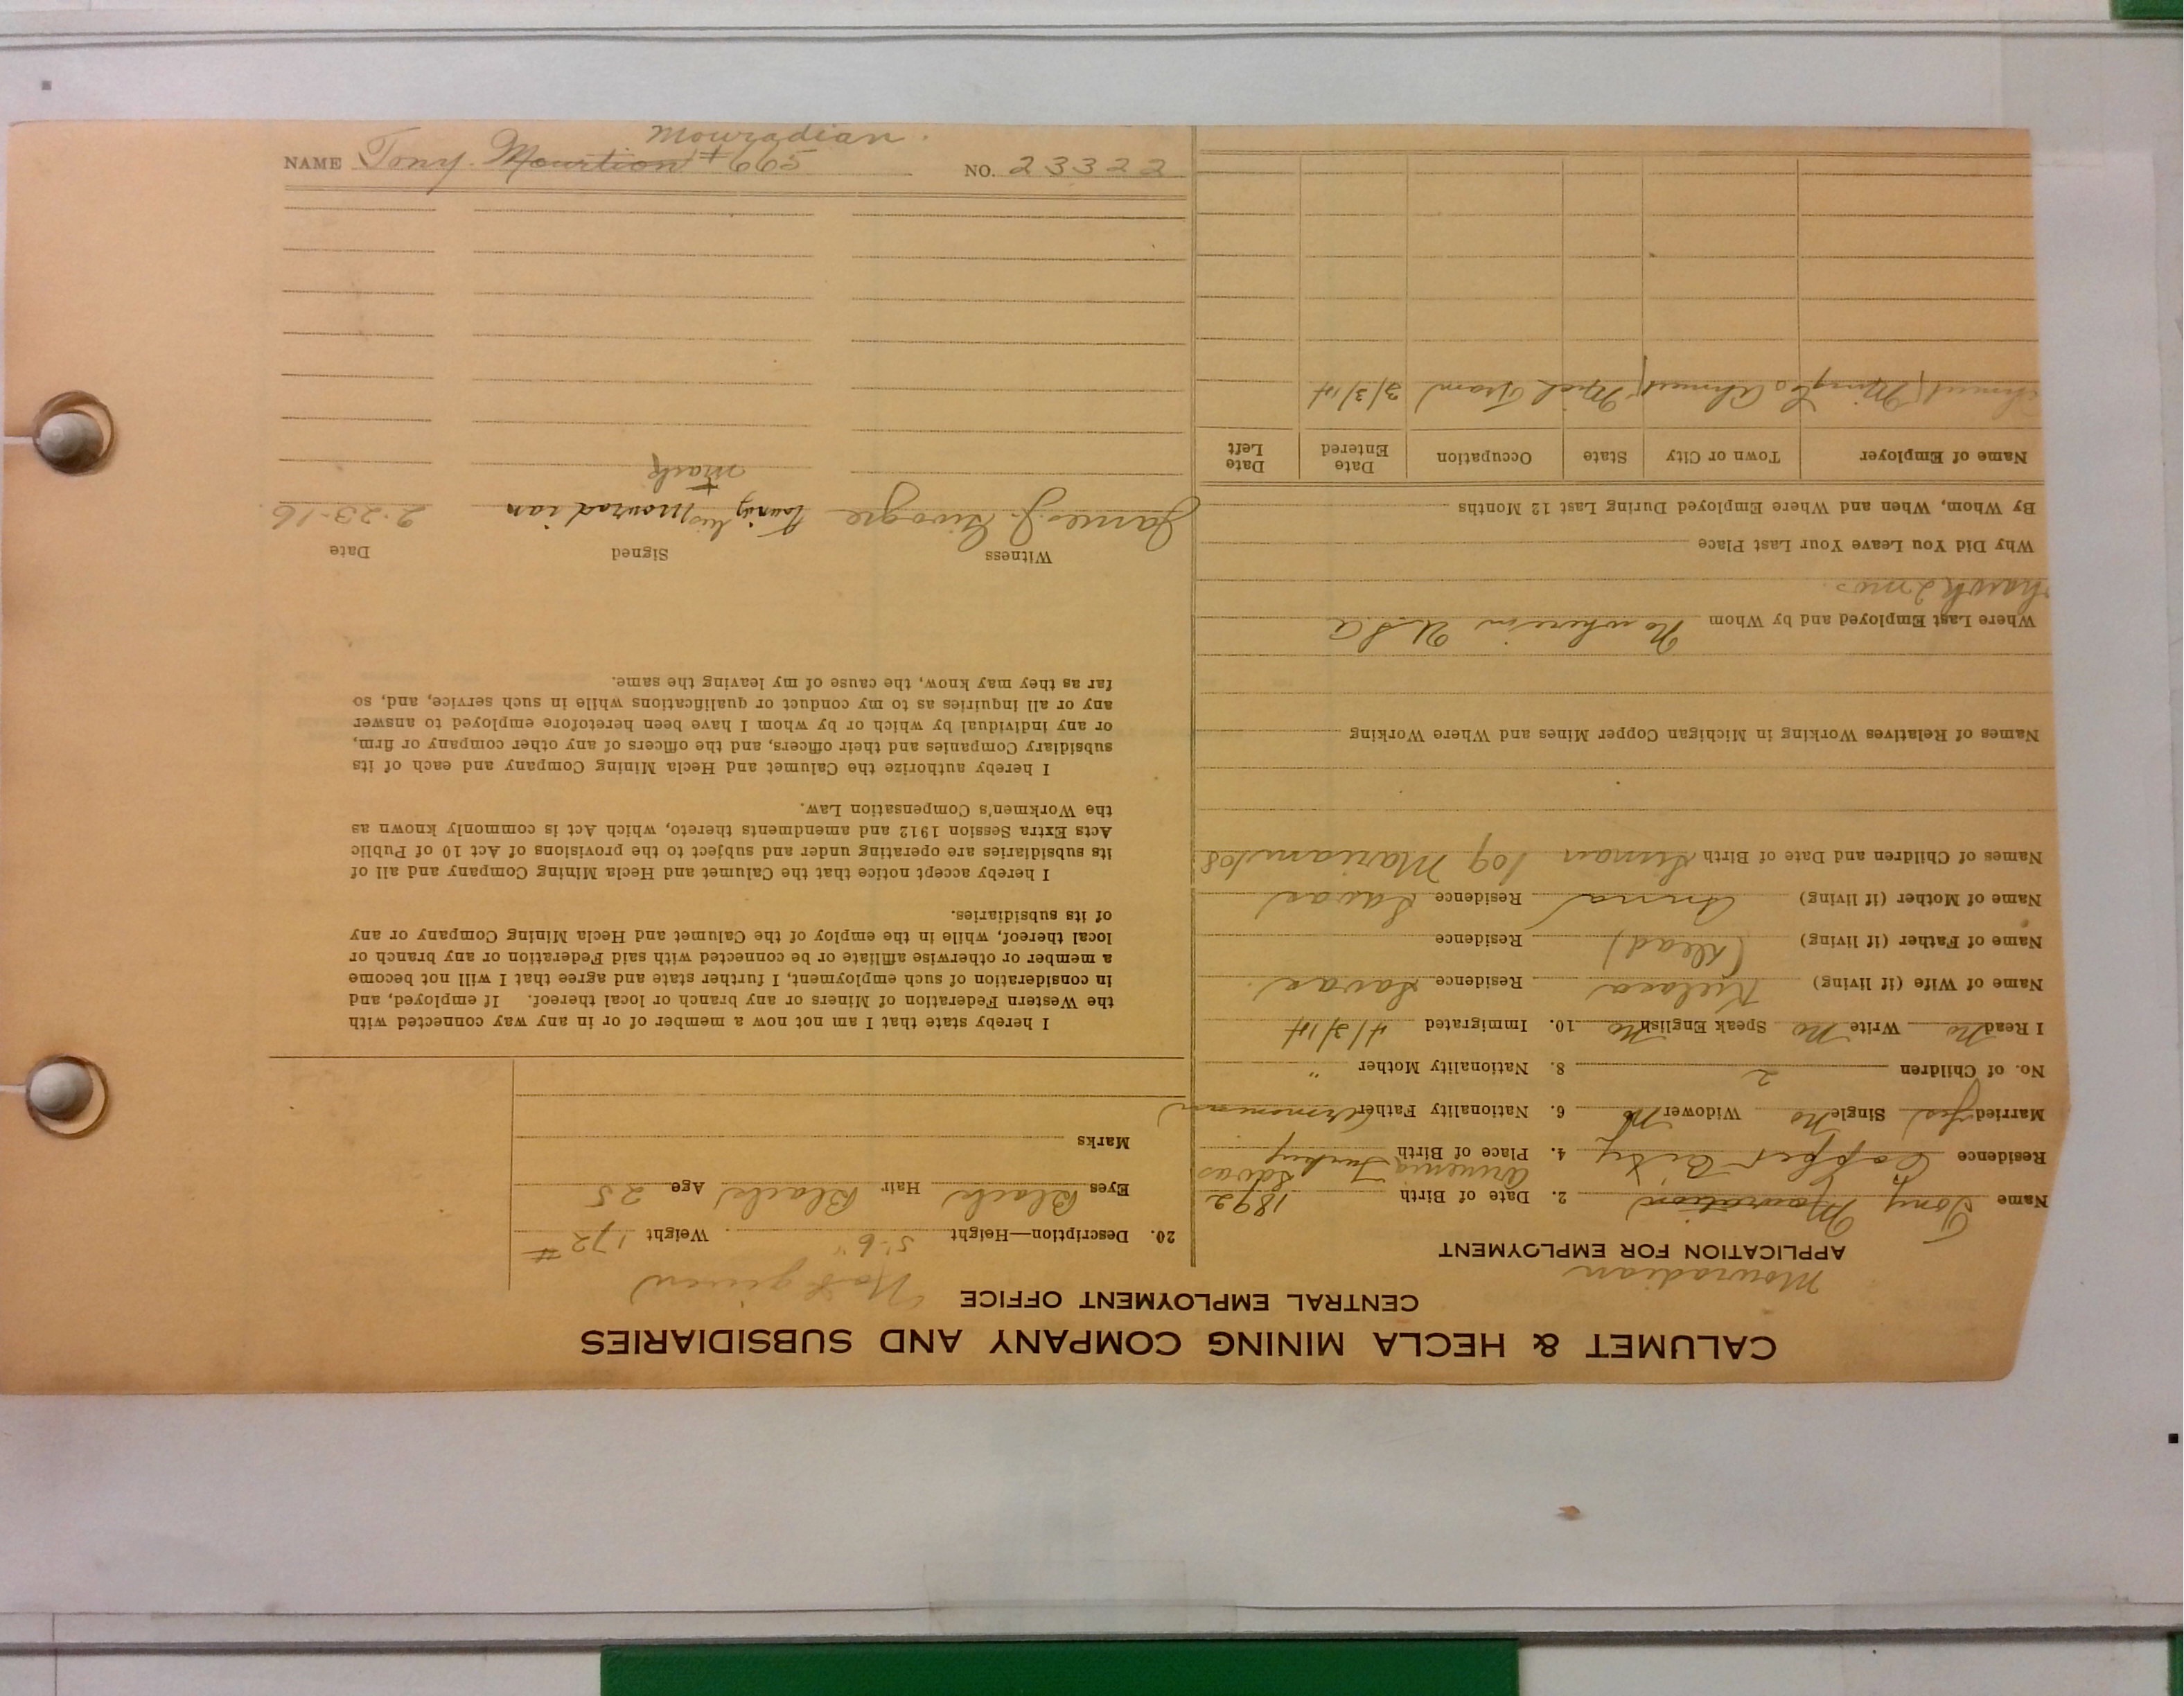 CALUMET & HECLA MINING COMPANY AND SUBSIDIARIES
CENTRAL EMPLOYMENT OFFICE
Mouradian
APPLICATION FOR EMPLOYMENT
Name Tony Mourtion 2. Date of Birth 1892
Armenia Savas
Residence Copper City 4. Place of Birth Turkey
Married yes Single No Widower No 6. Nationality Father Armenian
No. of Children 2 8. Nationality Mother "
I Read No Write No Speak English No 10. Immigrated 4/3/14
Name of Wife (if living) Residence Savas
Name of Father (if living) (Dead) Residence
Name of Mother (if living) Anna Residence Savas
Names of Children and Date of Birth Simon 109 Mariam 108
Names of Relatives Working in Michigan Copper Mines and Where Working
Where Last Employed and by Whom No where in U S A
2 mos.
Why Did You Leave Your Last Place
By Whom, When and Where Employed During Last 12 Months
Name of Employer Town or City State Occupation Date Entered Date Left
Ahmeek Mining Co Ahmeek Mich Tram 3/3/14
Not given
20. Description—Height 5'-6" Weight 172 #
Eyes Black Hair Black Age 25
Marks
I hereby state that I am not now a member of or in any way connected with
the Western Federation of Miners or any branch or local thereof. If employed, and
in consideration of such employment, I further state and agree that I will not become
a member or otherwise affiliate or be connected with said Federation or any branch or
local thereof, while in the employ of the Calumet and Hecla Mining Company or any
of its subsidiaries.
I hereby accept notice that the Calumet and Hecla Mining Company and all of
its subsidiaries are operating under and subject to the provisions of Act 10 of Public
Acts Extra Session 1912 and amendments thereto, which Act is commonly known as
the Workmen's Compensation Law.
I hereby authorize the Calumet and Hecla Mining Company and each of its
subsidiary Companies and their officers, and the officers of any other company or firm,
or any individual by which or by whom I have been heretofore employed to answer
any or all inquiries as to my conduct or qualifications while in such service, and, so
far as they may know, the cause of my leaving the same.
Witness Signed Date
James J. his Mouradian 2-23-16
mark
Mouradian.
NAME Tony Mourtion #665 NO. 23322